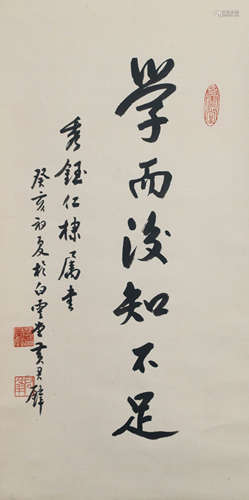 學而後知不足
秀鈺仁棣屬書
癸亥初夏於白雲堂黃君璧